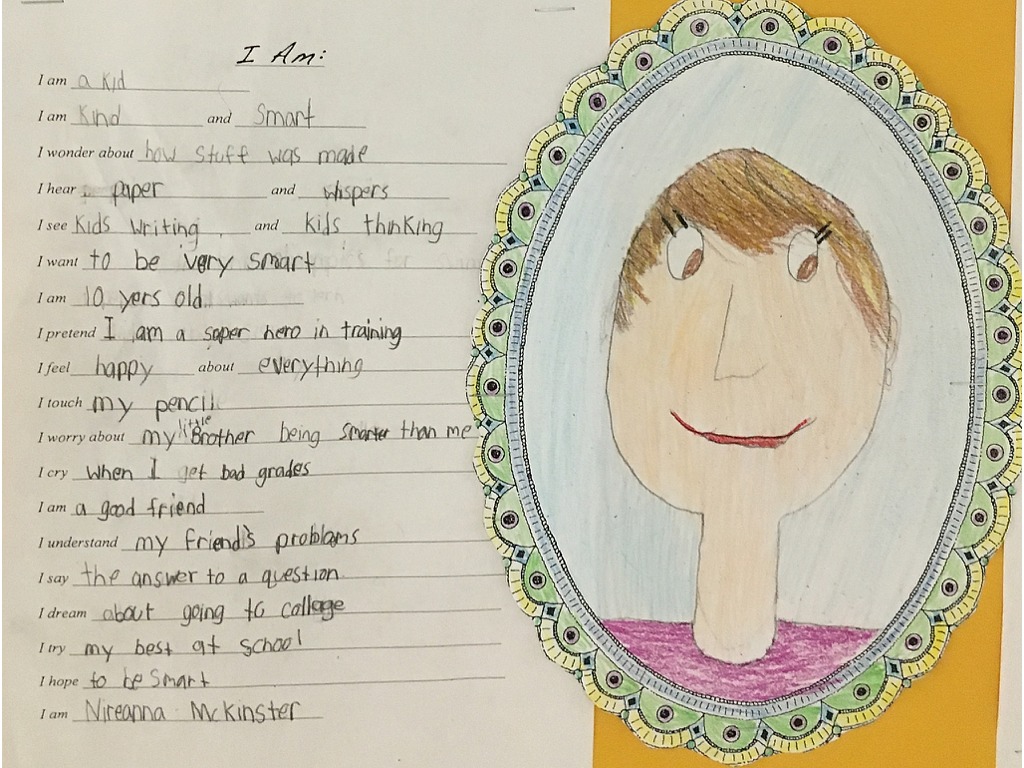 I Am:
I am a Kid
I am Kind and Smart
I wonder about how stuff was made
I hear paper and whispers
I see Kids Writing and kids thinKing
I want to be very smart
I am 10 yers old
I pretend I am a soper hero in training
I feel happy about everything
I touch my pencil
I worry about my little Brother being smarter than me
I cry when I get bad grades
I am a good friend
I understand my friend's problams
I say the answer to a question
I dream about going to callege
I try my best at school
I hope to be Smart
I am Nireanna McKinster